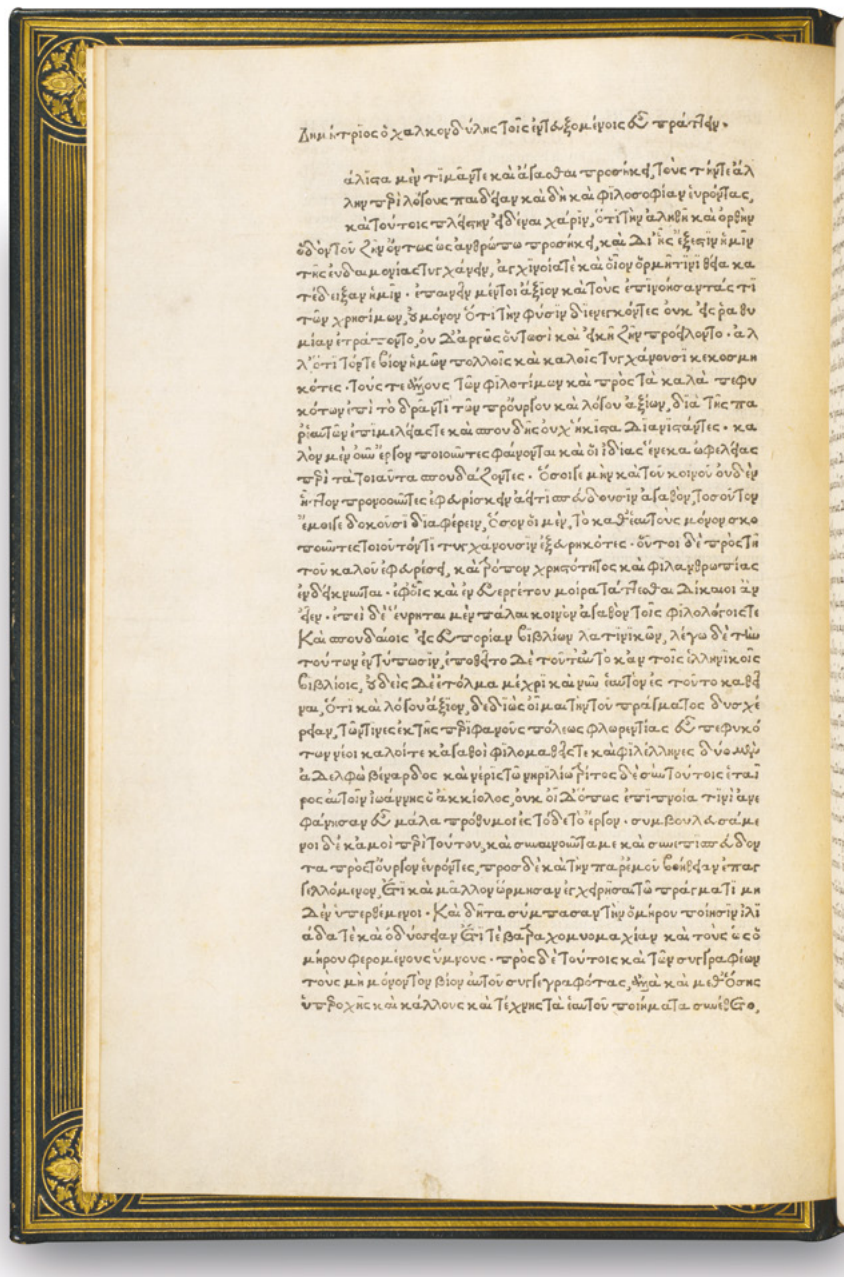 Δημήτριος ὁ χαλκονδύλης τοῖς ἐντευξομένοις εὖ πράττειν.
άλιστα μὲν τιμᾶν τε καὶ ἄγασθαι προσήκει, τοὺς τήν τε ἄλ
λην περὶ λόγους παιδείαν καὶ δὴ καὶ φιλοσοφίαν εὑρόντας,
καὶ τούτοις πλείστην εἰδέναι χάριν, ὅτι τὴν ἀληθῆ καὶ ὀρθὴν
ὁδὸν τοῦ ζῆν ὄντως ὡς ἀνθρώπω προσήκει, καὶ δι' ἧς ἔξεστιν ἡμῖν
τῆς εὐδαιμονίας τυγχάνειν, ἀγχινοία τὲ καὶ οἷον ὁρμῆ τινι θεία κα
τέδειξαν ἡμῖν. ἐπαινεῖν μέντοι ἄξιον καὶ τοὺς ἐπινοήσαντάς τι
τῶν χρησίμων, οὐ μόνον ὅτι τὴν φύσιν διενεγκόντες οὐκ εἰς ῥαθυ
μίαν ἐτράποντο, οὐδ' ἀργῶς οὑτωσὶ καὶ εἰκῆ ζῆν προείλοντο. ἀλ
λ' ὅτι τόν τε βίον ἡμῶν πολλοῖς καὶ καλοῖς τυγχάνουσι κεκοσμη
κότες. τούς τε ἄλλους τῶν φιλοτίμων καὶ πρὸς τὰ καλὰ πεφυ
κότων ἐπὶ τὸ δρᾶν τι τῶν προὔργου καὶ λόγου ἀξίων, διὰ τῆς πα
ρ' ἑαυτῶν ἐπιμελείας τε καὶ σπουδῆς οὐχ ἥκιστα διανιστάντες. κα
λὸν μὲν οὖν ἔργον ποιοῦντες φαίνονται καὶ οἱ ἰδίας ἕνεκα ὠφελείας
περὶ τὰ τοιαῦτα σπουδάζοντες. ὅσοι γε μὴν καὶ τοῦ κοινοῦ οὐδὲν
ἧττον προνοοῦντες ἐφευρίσκειν ἀεί τι σπεύδουσιν ἀγαθὸν, τοσοῦτον
ἔμοιγε δοκοῦσι διαφέρειν, ὅσον οἱ μὲν, τὸ καθ' ἑαυτοὺς μόνον σκο
ποῦντες τοιοῦτόν τι τυγχάνουσιν ἐξευρηκότες. οὗτοι δὲ πρὸς τῆ
τοῦ καλοῦ ἐφευρέσει, καὶ τρόπου χρηστότητος καὶ φιλανθρωπίας
ἐνδείκνυνται. ἐφ' οἷς καὶ ἐν εὐεργέτου μοίρα τάττεσθαι δίκαιοι ἂν
εἶεν. ἐπεὶ δὲ εὕρηται μὲν πάλαι κοινὸν ἀγαθὸν τοῖς φιλολόγοις τε
καὶ σπουδαίοις εἰς εὐπορίαν βιβλίων λατινικῶν, λέγω δὲ τὴν
τούτων ἐντύπωσιν, ἐποθεῖτο δὲ τοῦτ' αὐτὸ κἀν τοῖς ἑλληνικοῖς
βιβλίοις, οὐδεὶς δὲ ἐτόλμα μέχρι καὶ νῦν ἑαυτὸν ἐς τοῦτο καθεῖ
ναι, ὅτι καὶ λόγου ἄξιον, δεδιὼς οἶμαι τὴν τοῦ πράγματος δυσχέ
ρειαν, τῶν τινες ἐκ τῆς περιφανοῦς πόλεως φλωρεντίας εὖ πεφυκό
των νέοι καλοί τε κἀγαθοὶ φιλομαθεῖς τε καὶ φιλέλληνες δύο μὲν
ἀδελφὼ βέναρδος καὶ νέριος τὼ νηριλίω τρίτος δὲ σὺν τούτοις ἑταῖ
ρος αὐτοῖν ἰωάννης ὁ ἀκκίολος, οὐκ οἶδ' ὅπως ἐπιπνοία τινὶ ἀνε
φάνησαν εὖ μάλα πρόθυμοι ἐς τόδε τὸ ἔργον. συμβουλευσάμε
νοι δὲ κἀμοὶ περὶ τούτου, καὶ συναινοῦντά με καὶ συνεπισπεύδον
τα πρὸς τοὔργον εὑρόντες, προσδὲ καὶ τὴν παρ' ἐμοῦ βοήθειαν ἐπαγ
γελλόμενον, ἔτι καὶ μᾶλλον ὥρμησαν ἐγχειρῆσαι τῶ πράγματι μη
δὲν ὑπερθέμενοι. Καὶ δῆτα σύμπασαν τὴν ὁμήρου ποίησιν ἰλι
άδα τὲ καὶ ὀδύσσειαν ἔτι τὲ βατραχομυομαχίαν καὶ τοὺς ὡς ὁ
μήρου φερομένους ὕμνους. πρὸς δὲ τούτοις καὶ τῶν συγγραφέων
τοὺς μὴ μόνον τὸν βίον αὐτοῦ συγγεγραφότας, ἀλλὰ καὶ μεθ' ὅσης
ὑπεροχῆς καὶ κάλλους καὶ τέχνης τὰ ἑαυτοῦ ποιήματα συνέθετο,